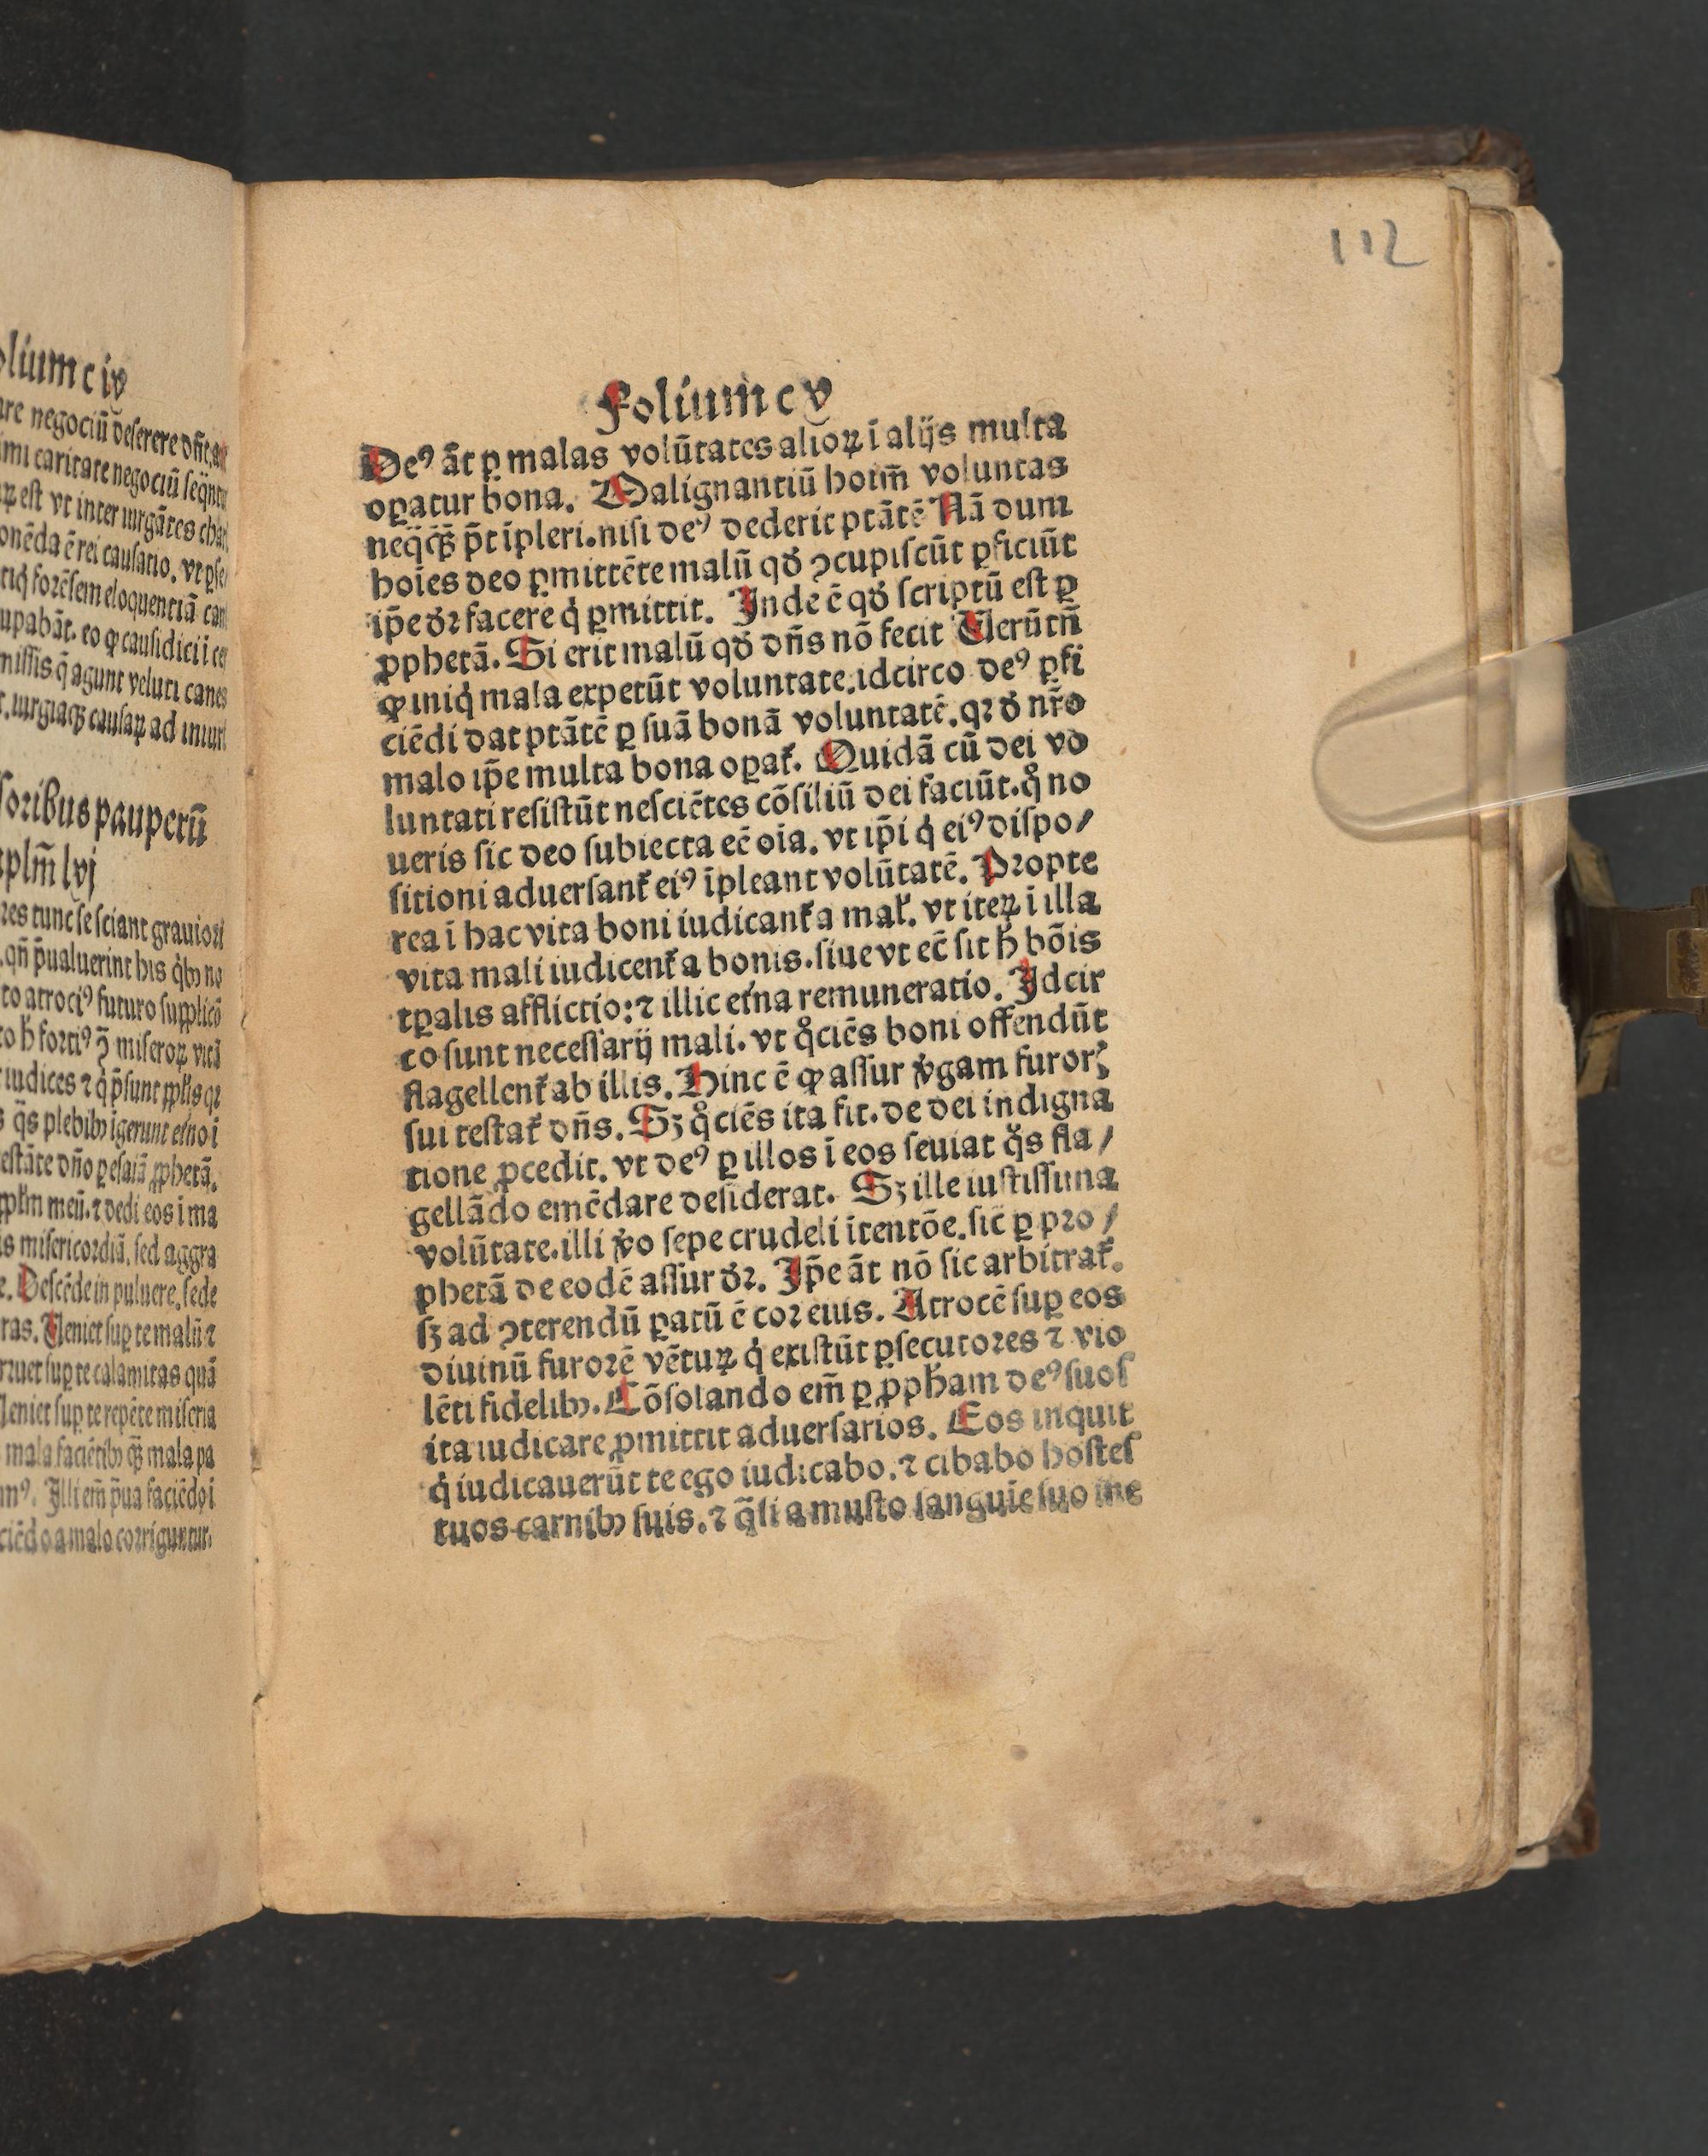 olium c iv
are negociū deserere dñt. at
imi caritate negociū seq̄nt
est vt inter iurgātes
onēda ē rei causatio. vt
forēsem eloquentiā
upabāt. eo ꝙ causidici i
missis q̄ agunt veluti canes
iurgiaqꝫ causaꝝ ad iniuri
soribus pauperū
plm̄ lvj
res tunc se sciant grauiori
qñ p̄ualuerint his qͥbꝫ no
to atrociꝰ futuro
to hͦ fortiꝰ miseroꝝ vitā
iudices ⁊ qͥ p̄sunt
q̄s plebibꝫ igerunt
estāte dño ꝑ esaiā ꝓphetā.
meū. ⁊ dedi eos i ma
is misericordiā. sed aggra
e. Descēde in puluere. sede
ras. Ueniet suꝑ te malū ⁊
rruet suꝑ te calamitas quā
Ueniet suꝑ te repēte miseria
mala faciētibꝫ qꝫ mala pa
mꝰ. Illi em̄ p̄ua faciēdo i
ciēdo a malo corriguntur.
112
Folium c v
Deꝰ āt ꝑ malas volūtates alioꝝ ī alijs multa
oꝑatur bona. Malignantiū hoīm̄ voluntas
neq̄qꝫ p̄t īpleri. nisi deꝰ dederit ptātē Nā dum
hoīes deo ꝑmittēte malū qď ꝯcupiscūt ꝑficiūt
ip̄e dr̄ facere qͥ ꝑmittit. Inde ē qď scriptū est ꝑ
ꝓphetā. Si erit malū qď dn̄s nō fecit Uerūtñ
ꝙ iniqͥ mala expetūt voluntate. idcirco deꝰ ꝑfi
ciēdi dat ptātē ꝑ suā bonā voluntatē. qꝛ ď nr̄o
malo ip̄e multa bona oꝑat̄. Quidā cū dei vo
luntati resistūt nesciētes cōsiliū dei faciūt. qͦ no
ueris sic deo subiecta eē oīa. vt ip̄i qͥ eiꝰ dispo/
sitioni aduersant̄ eiꝰ īpleant volūtatē. Propte
rea ī hac vita boni iudicant̄ a mal̄. vt iteꝝ i illa
vita mali iudicent̄ a bonis. siue vt eē sit hͦ bōis
tꝑalis afflictio: ⁊ illic et̄na remuneratio. Idcir
co sunt necessarij mali. vt qͦciēs boni offendūt
flagellent̄ ab illis. Hinc ē ꝙ assur v̄gam furorꝭ
sui testat̄ dn̄s. Sꝫ qͦciēs ita fit. de dei indigna
tione ꝓcedit. vt deꝰ ꝑ illos ī eos seuiat qͦs fla/
gellādo emēdare desiderat. Sꝫ ille iustissima
volūtate. illi v̄o sepe crudeli ītentōe. sic̄ ꝑ pro/
phetā de eodē assur dr̄. Ip̄e āt nō sic arbitrat̄.
sꝫ ad ꝯterendū ꝑatū ē cor eius. Atrocē suꝑ eos
diuinū furorē vētuꝝ qͥ existūt ꝑsecutores ⁊ vio
lēti fidelibꝫ. Cōsolando em̄ ꝑ ꝓpħam deꝰ suos
ita iudicare ꝑmittit aduersarios. Eos inquit
qͥ iudicauerūt te ego iudicabo. ⁊ cibabo hostes
tuos carnibꝫ suis. ⁊ q̄si a musto sanguīe suo ine